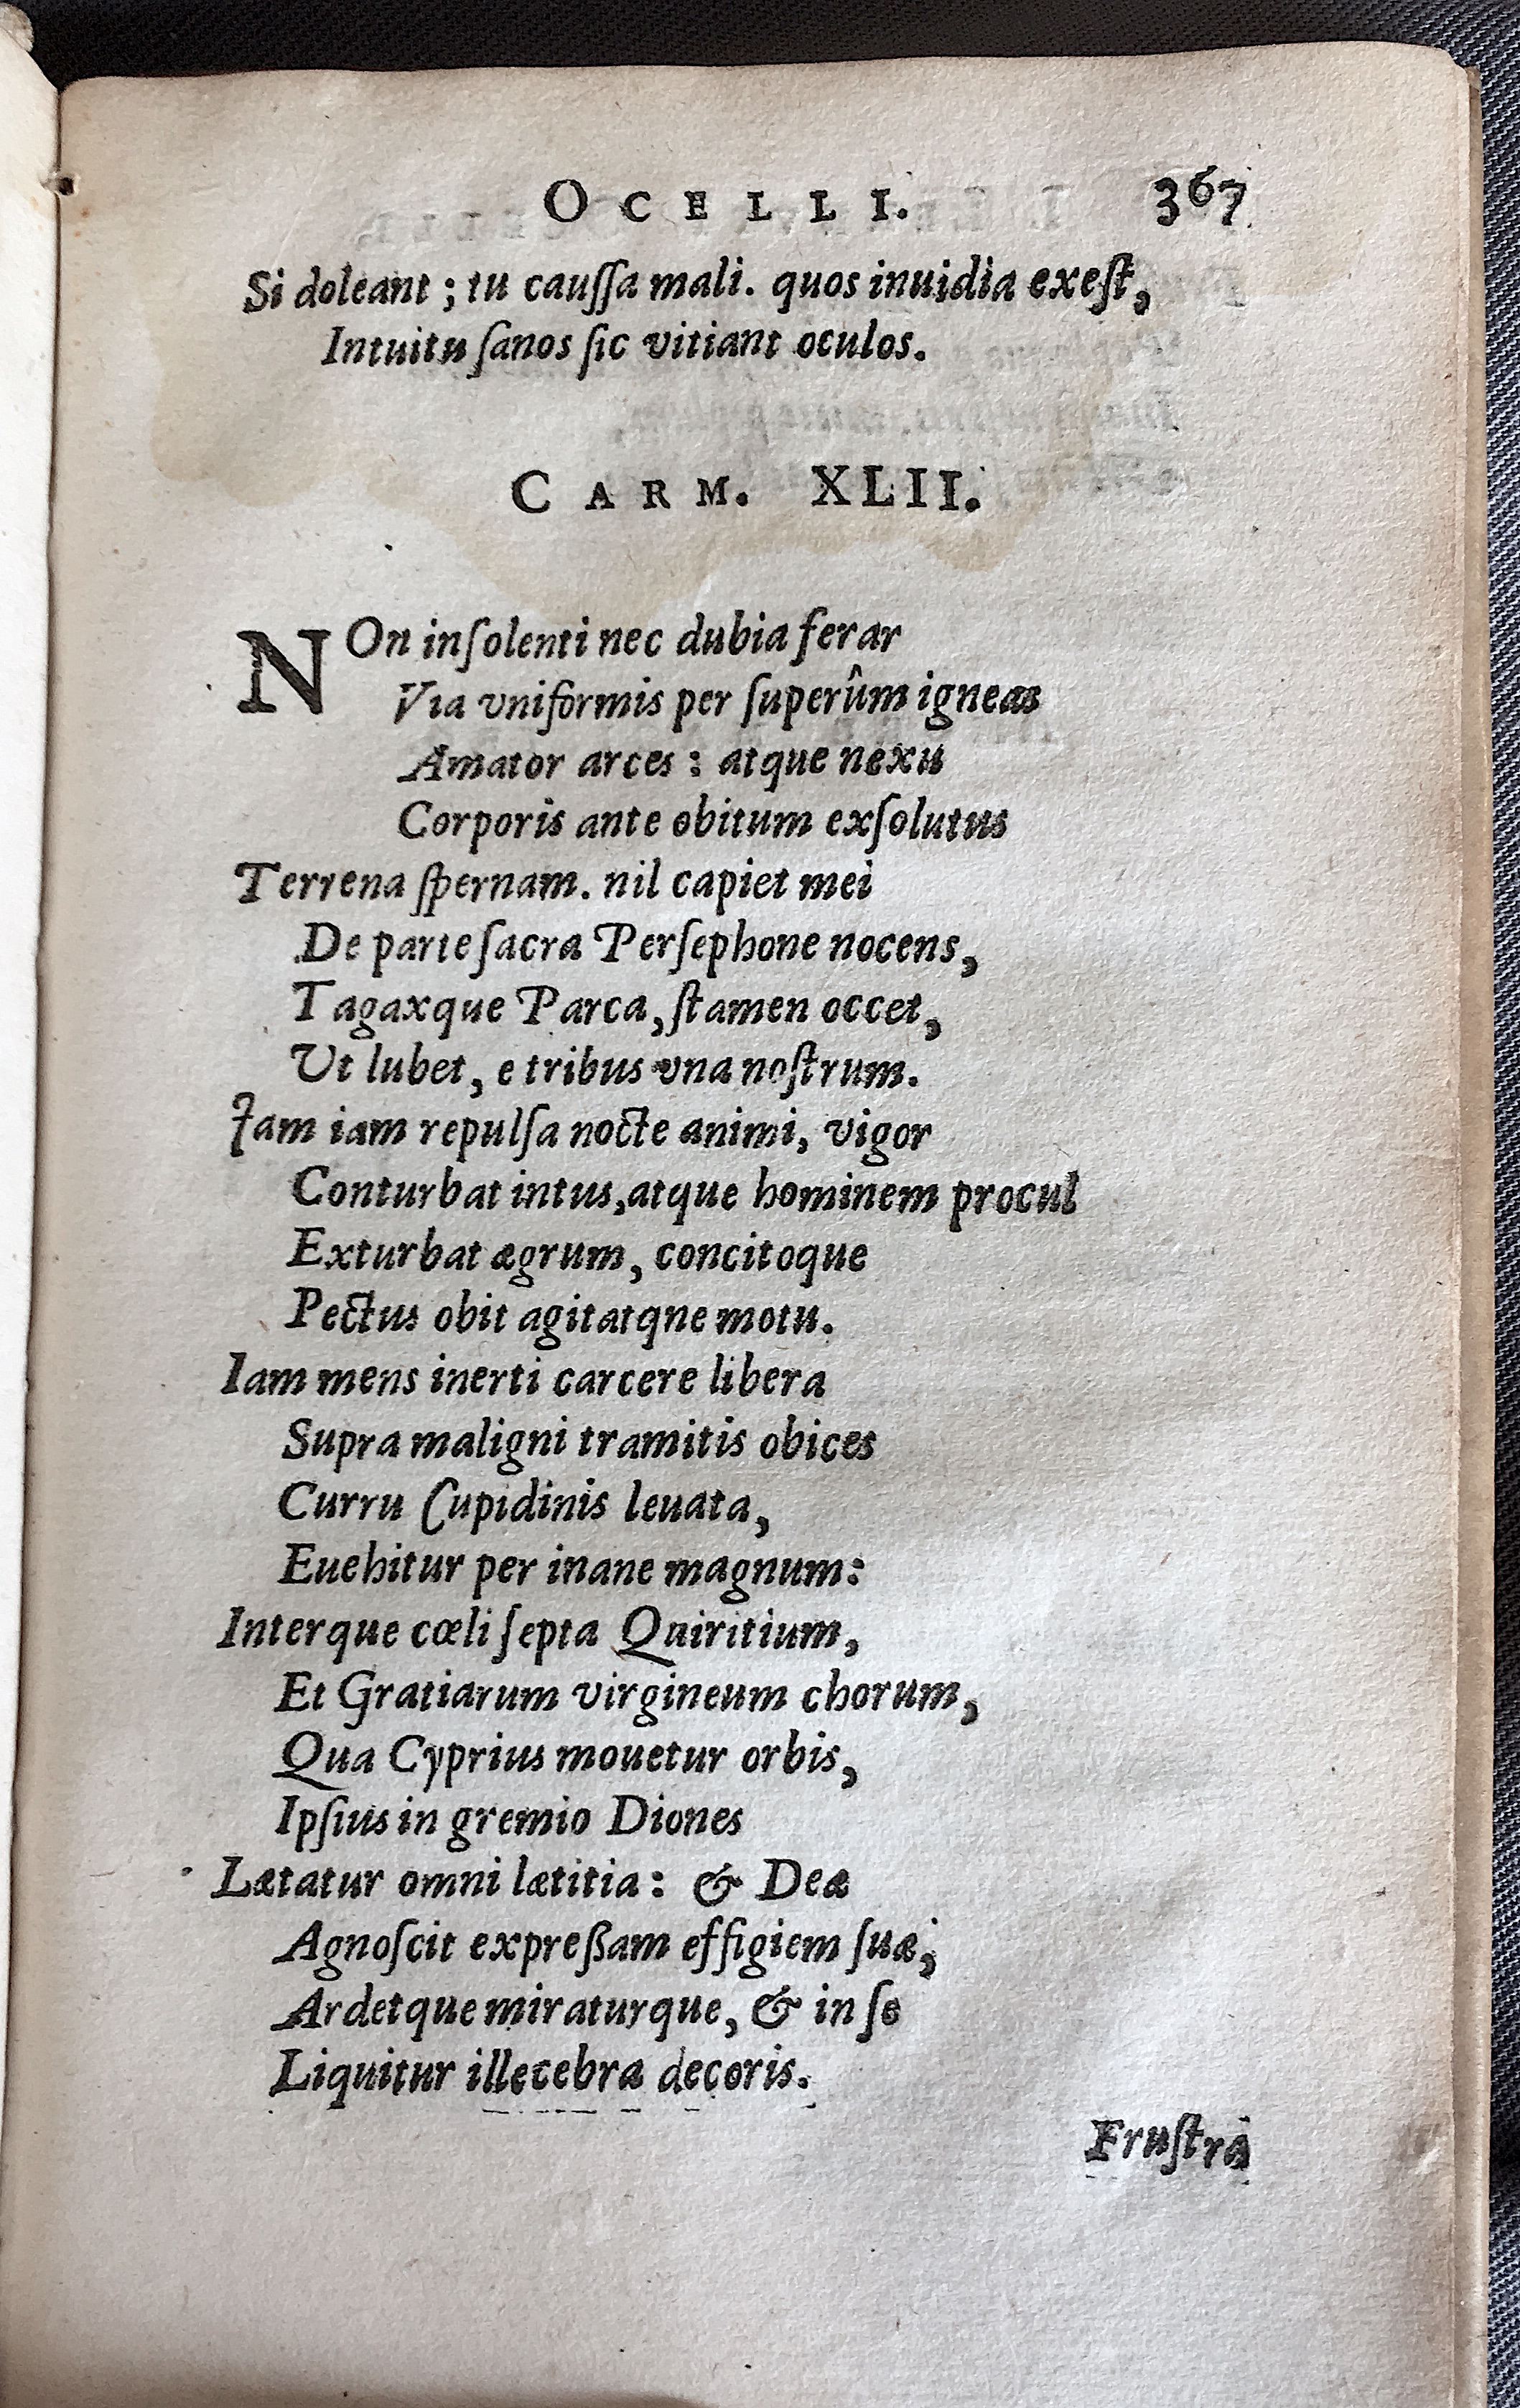 OCELLI. 367
Si doleant ; tu cauſſa mali. quos inuidia exeſt,
Intuitu ſanos ſic vitiant oculos.
CARM. XLII.
NOn inſolenti nec dubia ferar
Via vniformis per ſuperûm igneas
Amator arces : atque nexu
Corporis ante obitum exſolutus
Terrena ſpernam. nil capiet mei
De parte ſacra Perſephone nocens,
Tagaxque Parca, ſtamen occet,
Ut lubet, e tribus vna noſtrum.
Jam iam repulſa nocte animi, vigor
Conturbat intus, atque hominem procul
Exturbat ægrum, concitoque
Pectus obit agitatqne motu.
Iam mens inerti carcere libera
Supra maligni tramitis obices
Curru Cupidinis leuata,
Euehitur per inane magnum:
Interque cœli ſepta Quiritium,
Et Gratiarum virgineum chorum,
Qua Cyprius mouetur orbis,
Ipſius in gremio Diones
Lætatur omni lætitia : & Deæ
Agnoſcit expreßam effigiem ſuæ;
Ardetque miraturque, & in ſe
Liquitur illecebra decoris.
Fruſtra